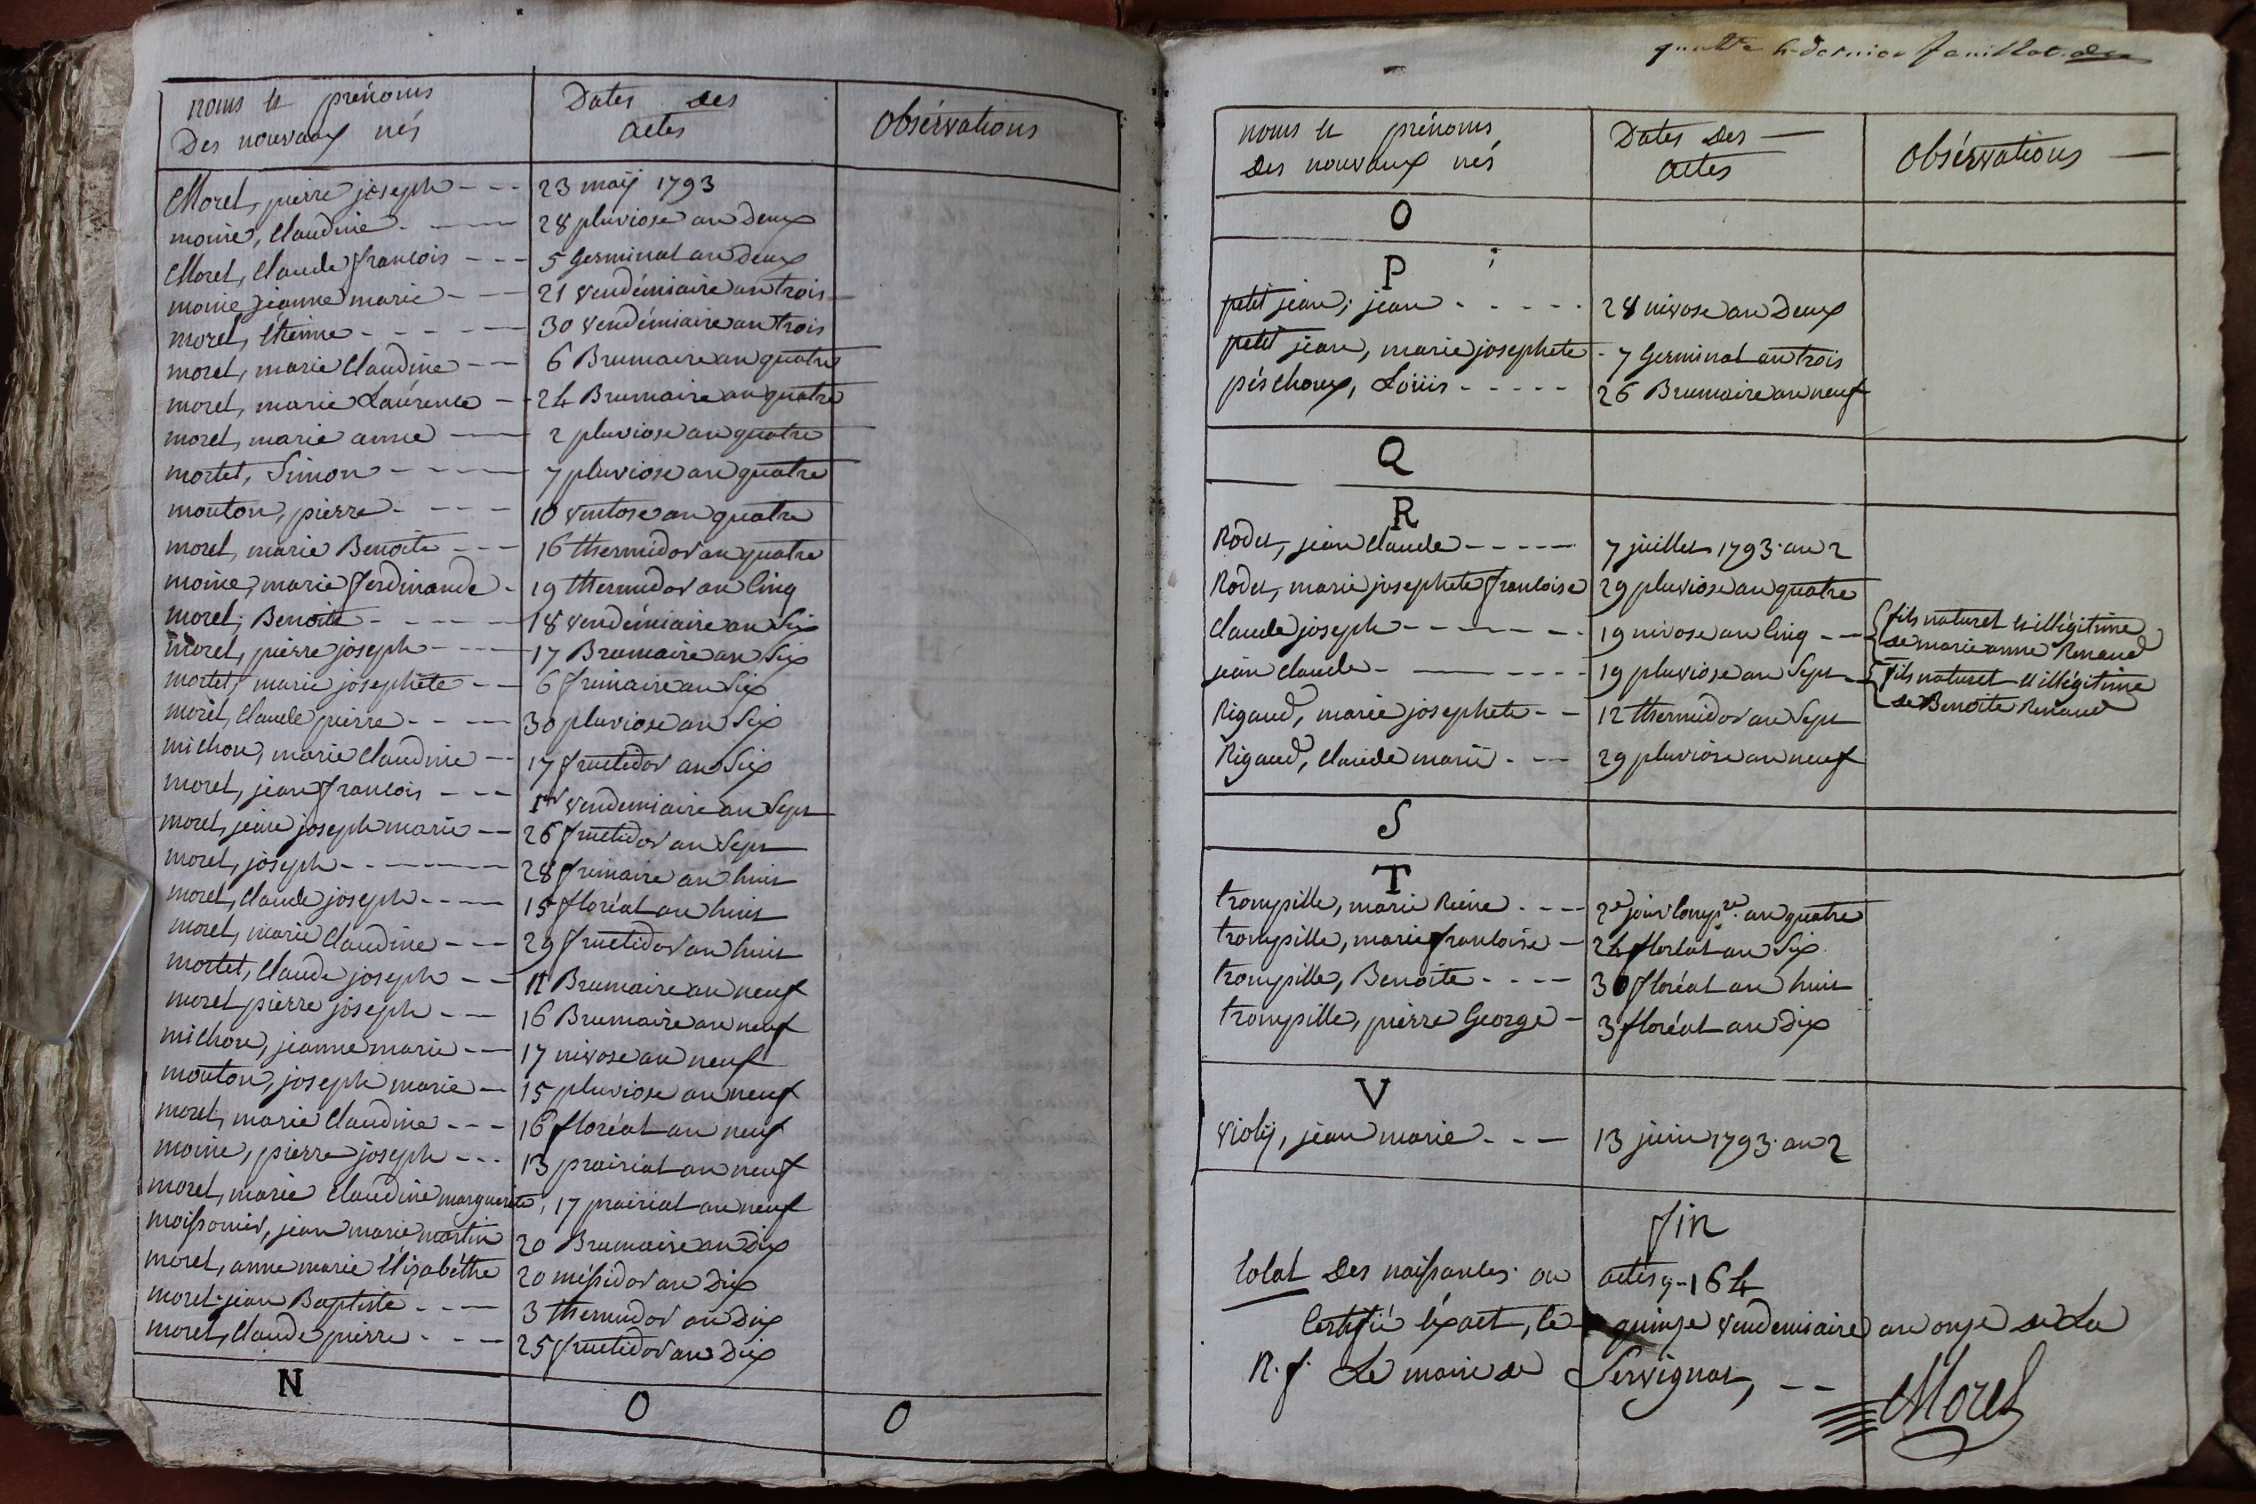 noms et prénoms
Des nouvaux nés
Dates des
actes
Obsérvations
Morel, pierre joseph --- 23 maÿ 1793
moine, Claudine. --- 28 pluviose an Deux
Morel, Claude françois --- 5 Germinal an Deux
moine jeanne marie --- 21 vendémiaire an trois
morel, étienne ----- 30 vendémiaire an trois
morel, marie Claudine --- 6 Brumaire an quatre
morel, marie Laurence -- 24 Brumaire an quatre
morel, marie anne --- 2 pluviose an quatre
mortel, Simon ----- 7 pluviose an quatre
mouton, pierre. --- 10 ventose an quatre
morel, marie Benoite --- 16 thermidor an quatre
moine, marie ferdinande - 19 thermidor an Cinq
morel, Benoite ----- 18 vendémiaire an Six
morel, pierre joseph ---- 17 Brumaire an Six
mortel, marie josephete -- 6 frimaire an Six
morel, Claude pierre ---- 30 pluviose an Six
michon, marie Claudine -- 17 fructidor an Six
morel, jean françois --- 1er vendemiaire an Sept
morel, jean joseph marie -- 26 fructidor an Sept
morel, joseph ------- 28 frimaire an huit
morel, Claude joseph ---- 15 floréal an huit
morel, marie Claudine --- 29 fructidor an huit
mortel, Claude joseph -- 11 Brumaire an neuf
morel pierre joseph --- 16 Brumaire an neuf
michon, jeanne marie -- 17 nivose an neuf
mouton, joseph marie - 15 pluviose an neuf
morel, marie Claudine --- 16 floréal an neuf
moine, pierre joseph --- 13 prairial an neuf
morel, marie Claudine marguerite, 17 prairial an neuf
moissonier, jean marie martin 20 Brumaire an Dix
morel, anne marie Elisabéthe 20 méssidor an Dix
morel. jean Baptiste ---- 3 thermidor an Dix
morel, Claude pierre. --- 25 fructidor an Dix
N O O
dernier feuillet
noms et prénoms
Des nouvaux nés
Dates Des
actes
Obsérvations
O
P
petit jean, jean ----- 28 nivose an Deux
petit jean, marie josephete - 7 Germinal an trois
péschoux, Loüis ----- 26 Brumaire an neuf
Q
R
Rodet, jean Claude ----- 7 juillet 1793. an 2
Rodet, marie josephete françoise 29 pluviose an quatre
Claude joseph ------ 19 nivose an Cinq -- fils naturel et illégitime
de marie anne Renaud
jean Claude ----- 19 pluviose an Sept -- fils naturel et illégitime
de Benoite Renaud
Rigaud, marie josephete -- 12 thermidor an Sept
Rigaud, Claude marie. -- 29 pluviose an neuf
S
T
trompille, marie Reine. --- 2e jour Compre. an quatre
trompille, marie françoise - 24 floréal an Six
trompille, Benoite ---- 30 floréal an huit
trompille, pierre George - 3 floréal an dix
V
violÿ, jean marie --- 13 juin 1793. an 2
fin
total Des naissances ou actes, 164
Certifié éxact, le quinze vendemiaire an onze de La
R. f. Le maire de Servignat, --
Morel